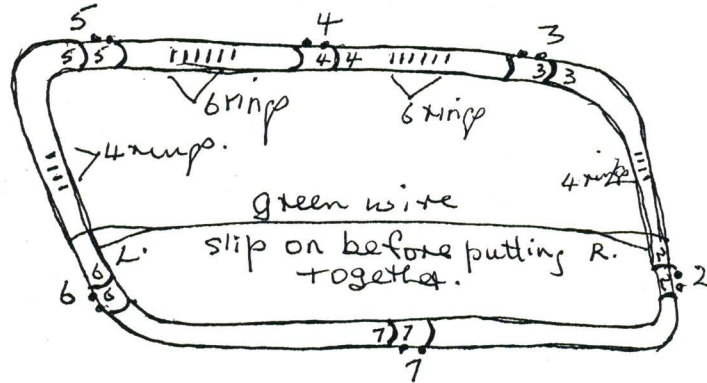 5 4 3
5 5 4 4 3 3
6 rings 6 rings
4 rings. 4 rings
green wire
L. slip on before putting R.
together.
6 6 6 2 2 2
7 7
7